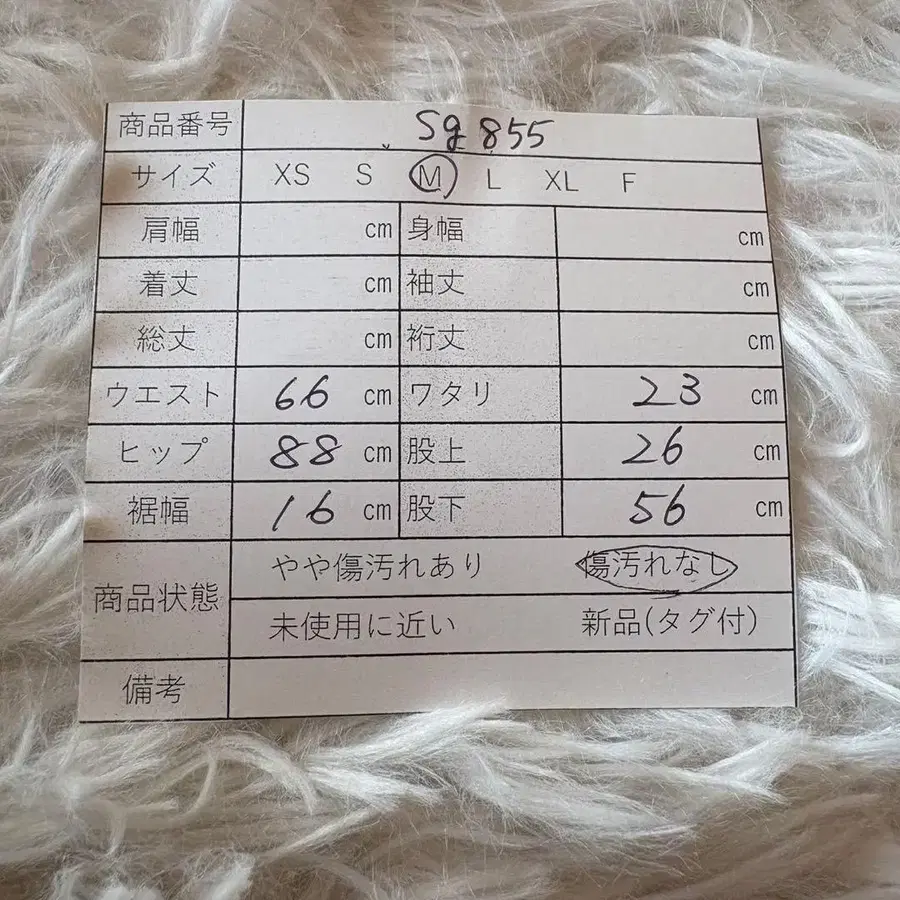 商品番号 Sg 855
サイズ XS S M L XL F
肩幅 cm 身幅 cm
着丈 cm 袖丈 cm
総丈 cm 裄丈 cm
ウエスト 66 cm ワタリ 23 cm
ヒップ 88 cm 股上 26 cm
裾幅 16 cm 股下 56 cm
商品状態 やや傷汚れあり 傷汚れなし
未使用に近い 新品(タグ付)
備考